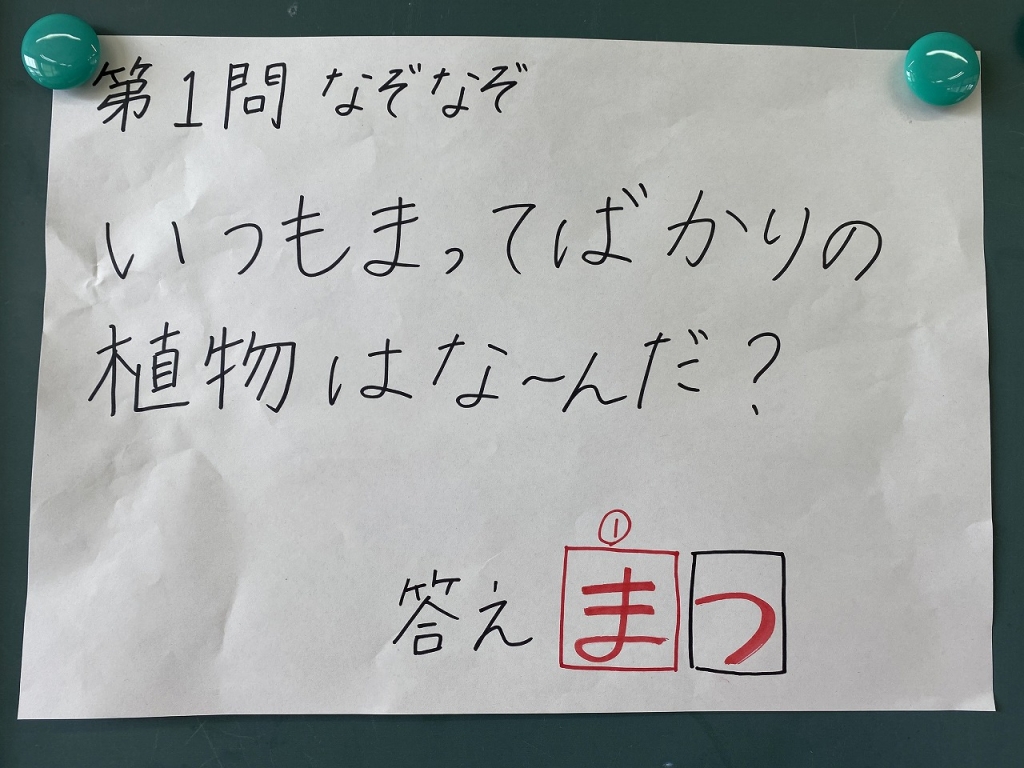 第1問 なぞなぞ
いつもまってばかりの
植物はな〜んだ?
①
答え まつ